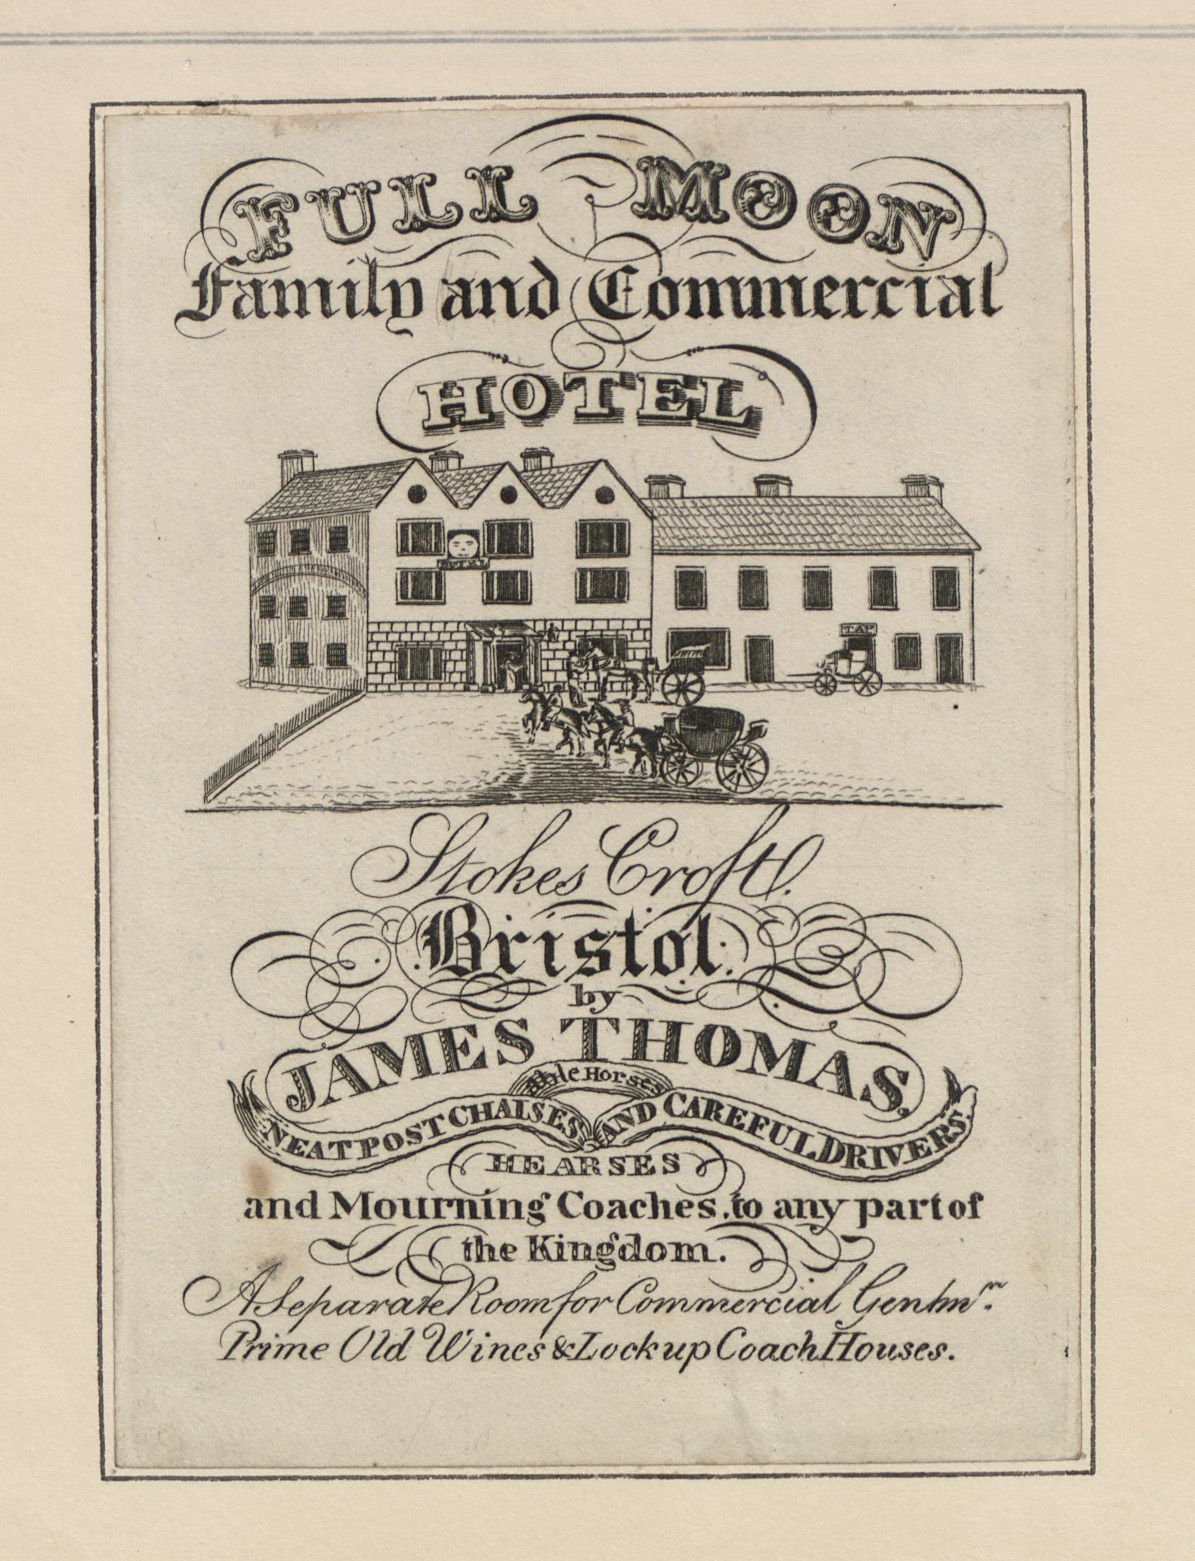 FULL MOON
Family and Commercial
HOTEL
HOTEL
TAP
Stokes Croft.
Bristol.
by
JAMES THOMAS.
Able Horses
NEAT POST CHALSES AND CAREFUL DRIVERS.
HEARSES
and Mourning Coaches, to any part of
the Kingdom.
A Separate Room for Commercial Gentmn.
Prime Old Wines & Lock up Coach Houses.